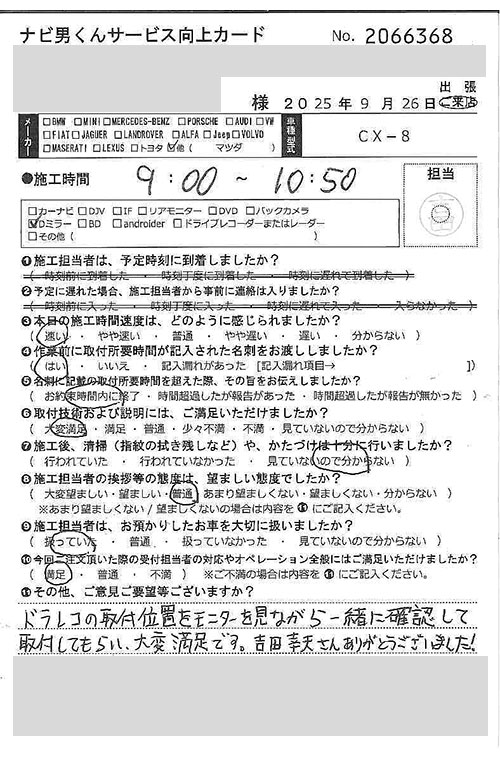 ナビ男くんサービス向上カード No. 2066368
様 2025年9月26日 出張 ご来店
メーカー □BMW □MINI □MERCEDES-BENZ □PORSCHE □AUDI □VW
□FIAT □JAGUER □LANDROVER □ALFA □Jeep □VOLVO
□MASERATI □LEXUS □トヨタ ☑他( マツダ )
車種/型式 CX-8
●施工時間 9:00 ~ 10:50 担当
□カーナビ □DJV □IF □リアモニター □DVD □バックカメラ
☑Dミラー □BD □androider □ドライブレコーダーまたはレーダー
□その他( )
❶施工担当者は、予定時刻に到着しましたか?
( 時刻前に到着した ・ 時刻丁度に到着した ・ 時刻に遅れて到着した )
❷予定に遅れた場合、施工担当者から事前に連絡は入りましたか?
( 時刻前に入った ・ 時刻丁度に入った ・ 時刻に遅れて入った ・ 入らなかった )
❸本日の施工時間速度は、どのように感じられましたか?
( 速い ・ やや速い ・ 普通 ・ やや遅い ・ 遅い ・ 分からない )
❹作業前に取付所要時間が記入された名刺をお渡ししましたか?
( はい ・ いいえ ・ 記入漏れがあった [記入漏れ項目→ ])
❺名刺に記載の取付所要時間を超えた際、その旨をお伝えしましたか?
( お約束時間内に終了 ・ 時間超過したが報告があった ・ 時間超過したが報告が無かった )
❻取付技術および説明には、ご満足いただけましたか?
( 大変満足 ・ 満足 ・ 普通 ・ 少々不満 ・ 不満 ・ 見ていないので分からない )
❼施工後、清掃(指紋の拭き残しなど)や、かたづけは十分に行いましたか?
( 行われていた ・ 行われていなかった ・ 見ていないので分からない )
❽施工担当者の挨拶等の態度は、望ましい態度でしたか?
( 大変望ましい・望ましい・普通・あまり望ましくない・望ましくない・分からない )
※あまり望ましくない/望ましくないの場合は内容を⓫にご記入ください。
❾施工担当者は、お預かりしたお車を大切に扱いましたか?
( 扱っていた ・ 普通 ・ 扱っていなかった ・ 見ていないので分からない )
❿今回ご注文頂いた際の受付担当者の対応やオペレーション全般にはご満足いただけましたか?
( 満足 ・ 普通 ・ 不満 ) ※ご不満の場合は内容を⓫にご記入ください。
⓫その他、ご意見ご要望等ございますか?
ドラレコの取付位置をモニターを見ながら一緒に確認して
取付してもらい、大変満足です。吉田幸夫さんありがとうございました!